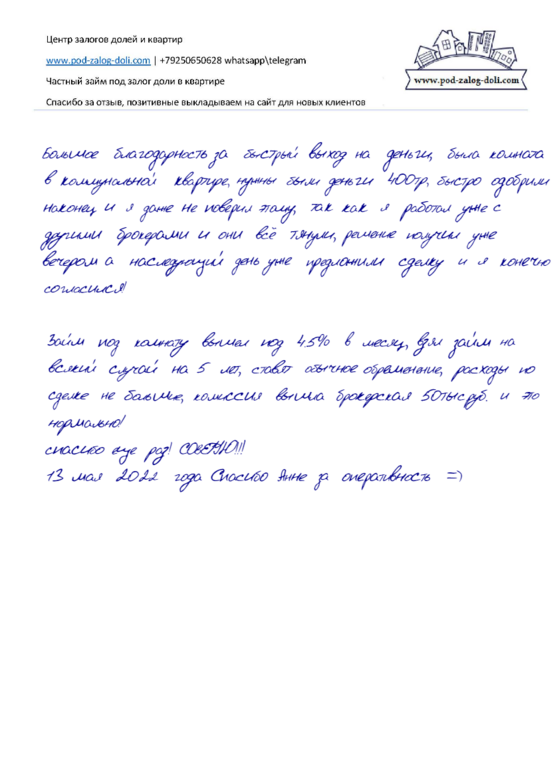 Центр залогов долей и квартир
www.pod-zalog-doli.com | +79250650628 whatsapp\telegram
Частный займ под залог доли в квартире
Спасибо за отзыв, позитивные выкладываем на сайт для новых клиентов
www.pod-zalog-doli.com
Большое благодарность за быстрый выход на деньги, была комната
в коммунальной квартире, нужны были деньги 400тр, быстро одобрили
наконец и я даже не поверил этому, так как я работал уже с
другими брокерами и они всё тянули, решение получил уже
вечером а наследующий день уже предложили сделку и я конечно
согласился!
Займ под комнату вышел под 4.5% в месяц, взял займ на
всякий случай на 5 лет, ставят обычное обременение, расходы по
сделке не большие, комиссия вышла брокерская 50тыс руб. и это
нормально!
спасибо еще раз! СОВЕТУЮ!!!
13 мая 2022 года Спасибо Анне за оперативность =)